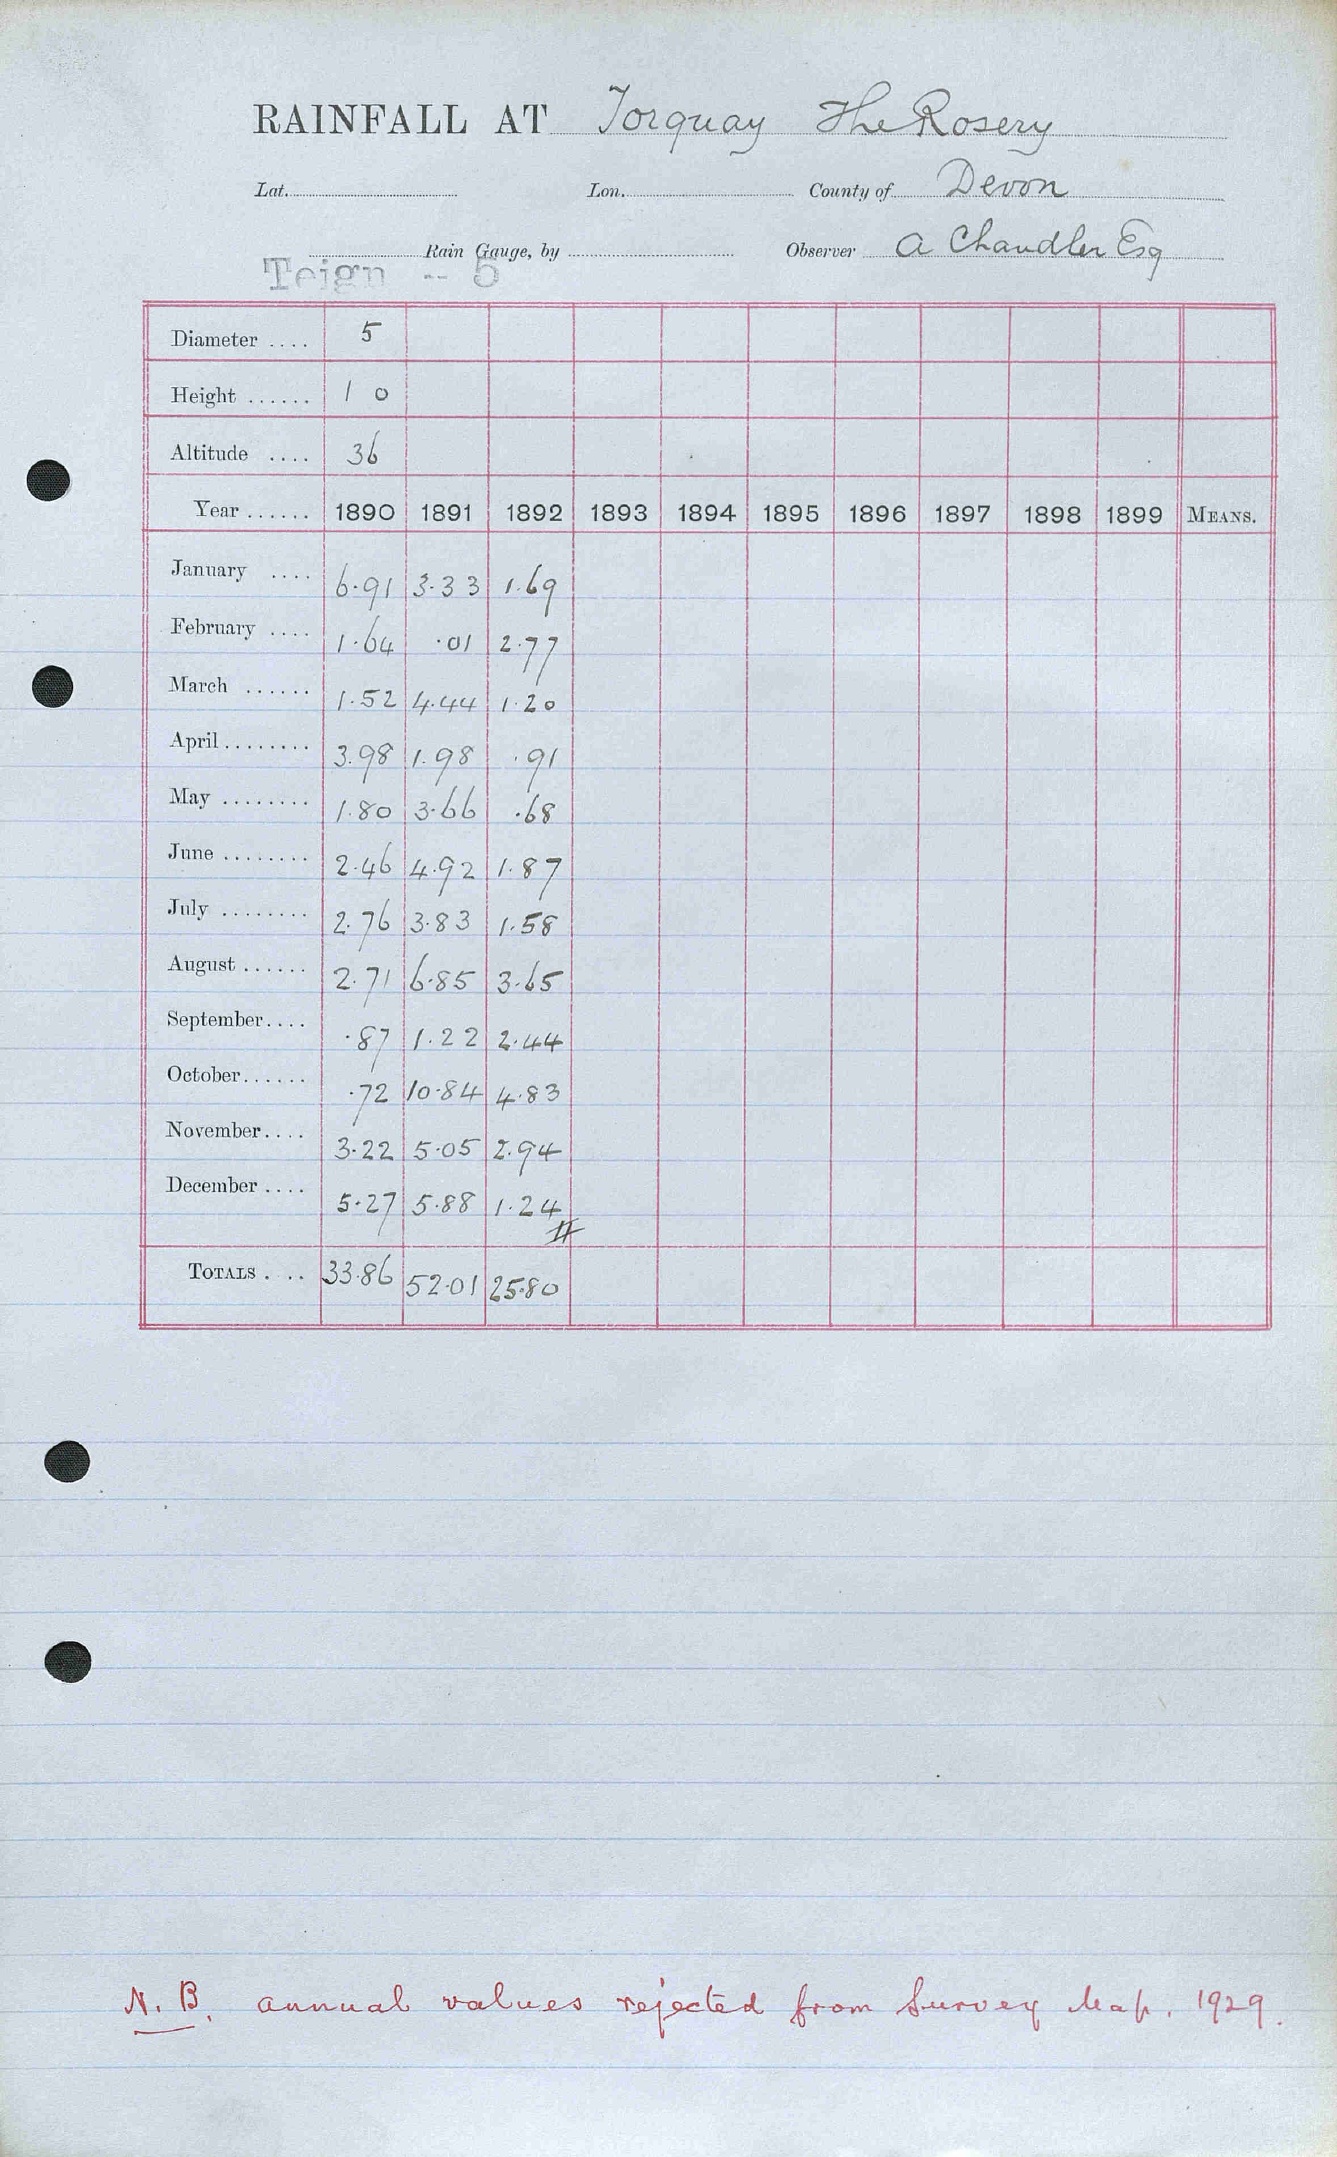 RAINFALL AT Torquay The Rosery
Lat. Lon. County of Devon
Rain Gauge, by Observer A Chandler Esq
Teign -- 5
Diameter .... 5
Height ...... 1 0
Altitude .... 36
Year ...... 1890 1891 1892 1893 1894 1895 1896 1897 1898 1899 MEANS.
January .... 6.91 3.33 1.69
February .... 1.64 .01 2.77
March ...... 1.52 4.44 1.20
April ........ 3.98 1.98 .91
May ........ 1.80 3.66 .68
June ........ 2.46 4.92 1.87
July ........ 2.76 3.83 1.58
August ...... 2.71 6.85 3.65
September .... .87 1.22 2.44
October ...... .72 10.84 4.83
November .... 3.22 5.05 2.94
December .... 5.27 5.88 1.24
TOTALS . ... 33.86 52.01 25.80
N.B. annual values rejected from Survey Map. 1929.